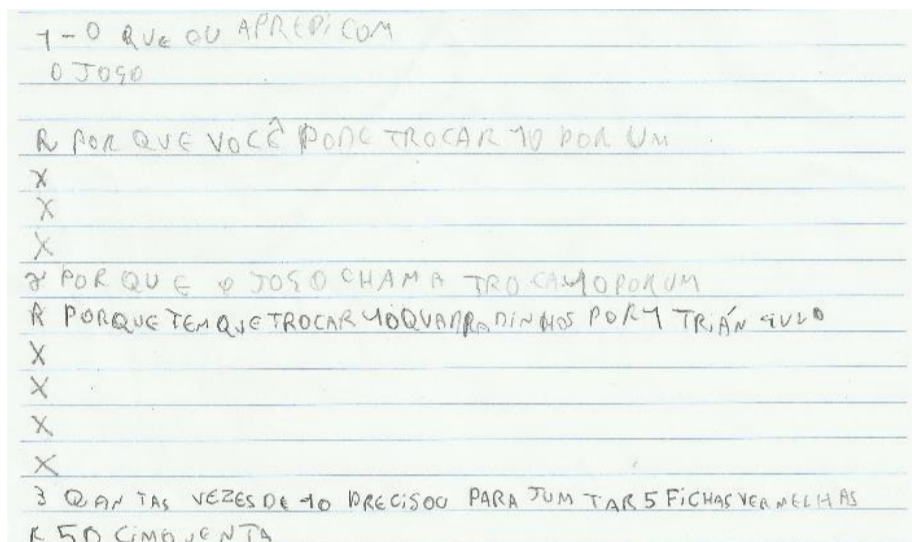 1-O QUE OU APREDI COM
O JOGO
R POR QUE VOCÊ PODE TROCAR 10 POR UM
X
X
X
2 POR QUE O JOGO CHAMA TROCA 10 POR UM
R PORQUE TEM QUE TROCAR 10 QUADRADINHOS POR 1 TRIÁNGULO
X
X
X
X
3 QANTAS VEZES DE 10 PRECISOU PARA JUMTAR 5 FICHAS VERMELHAS
R 50 CIMQUENTA